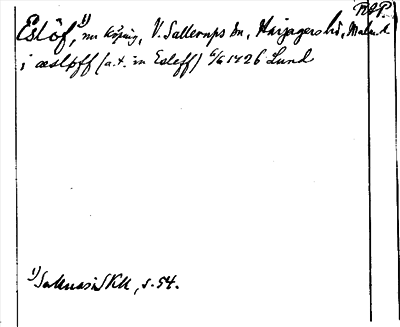 Eslöf, 1) nu köping, V. Sallerups sn, Harjagers hd, Malm. l.
i æslpff (a. t. in Esleff) 6/6 1426 Lund
1) Salenas SKU, s. 54.